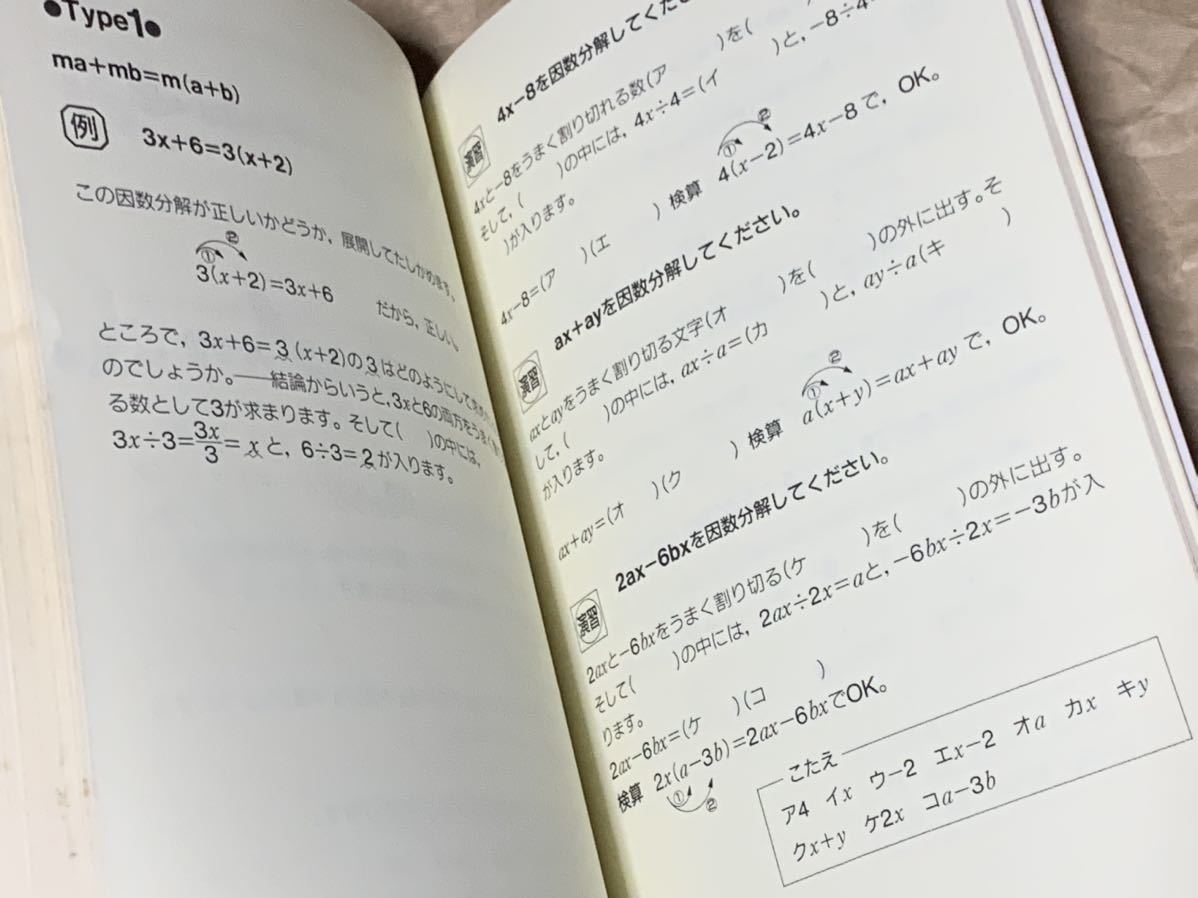 ●Type1●
ma+mb=m(a+b)
例 3x+6=3(x+2)
この因数分解が正しいかどうか，展開してたしかめます。
① ②
3(x+2)=3x+6 だから，正しい。
ところで，3x+6=3(x+2)の3はどのようにして
のでしょうか。――結論からいうと，3xと6の両方をうまく割り
る数として3が求まります。そして( )の中には，
3x÷3=3x/3=xと，6÷3=2が入ります。
演習 4x−8を因数分解してください
4xと−8をうまく割り切れる数(ア )を(
そして，( )の中には，4x÷4=(イ )と，−8÷4
)が入ります。
4x−8=(ア )(エ ) 検算 4(x−2)=4x−8で，OK。
① ②
演習 ax+ayを因数分解してください。
axとayをうまく割り切る文字(オ )を( )の外に出す。そ
して，( )の中には，ax÷a=(カ )と，ay÷a(キ )
が入ります。
ax+ay=(オ )(ク ) 検算 a(x+y)=ax+ayで，OK。
① ②
演習 2ax−6bxを因数分解してください。
2axと−6bxをうまく割り切る(ケ )を( )の外に出す。
そして( )の中には，2ax÷2x=aと，−6bx÷2x=−3bが入
ります。
2ax−6bx=(ケ )(コ )
検算 2x(a−3b)=2ax−6bxでOK。
① ②
こたえ
ア4 イx ウ−2 エx−2 オa カx キy
クx+y ケ2x コa−3b